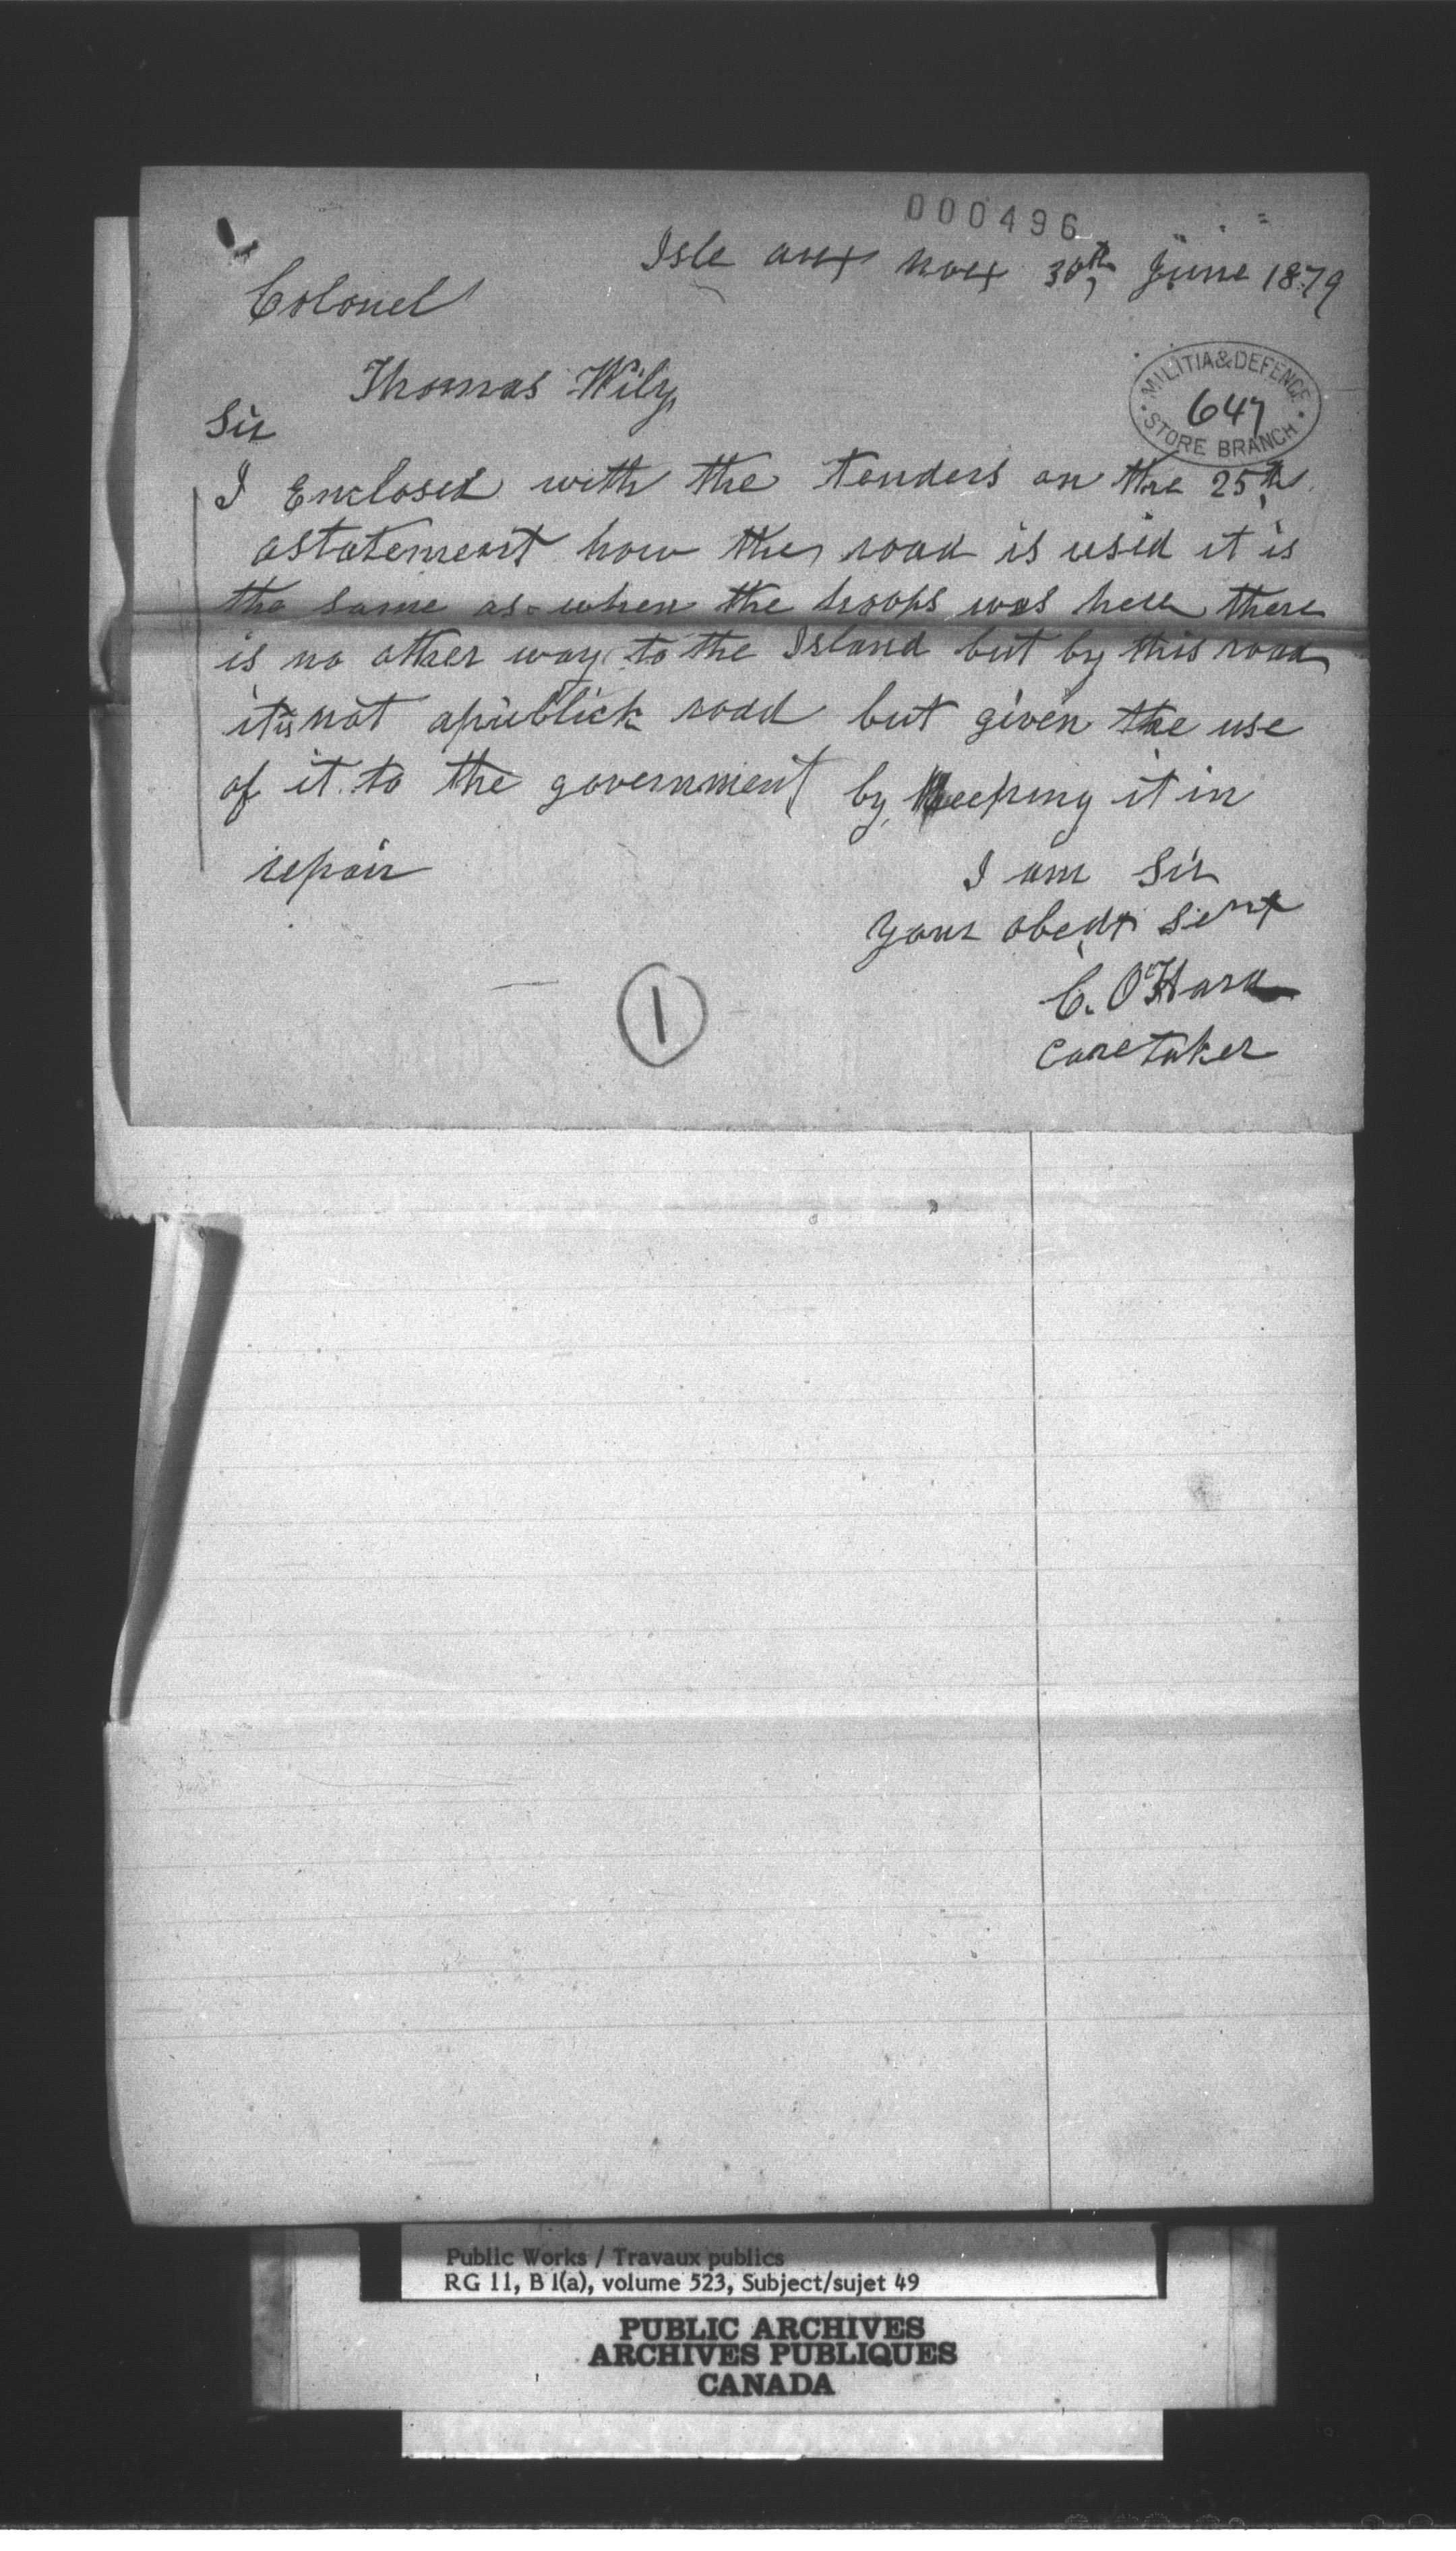 000496
Isle aux noix 30th June 1879
Colonel
Thomas Wily
MILITIA & DEFENCE
647
STORE BRANCH
Sir
I Enclosed with the tenders on the 25th
astatement how the road is used it is
the same as when the troops was here there
is no other way to the Island but by this road
it is not apublick road but given the use
of it to the government by Keeping it in
repair
I am Sir
your obedt Servt
C. O'Hara
Caretaker
1
Public Works / Travaux publics
RG 11, B 1(a), volume 523, Subject/sujet 49
PUBLIC ARCHIVES
ARCHIVES PUBLIQUES
CANADA